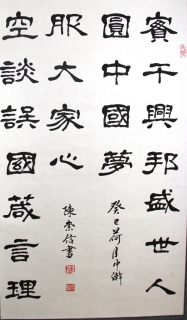 實干興邦盛世人
圓中國夢
癸巳荷月中澣
空談誤國箴言理
服大家心
陳崇信書